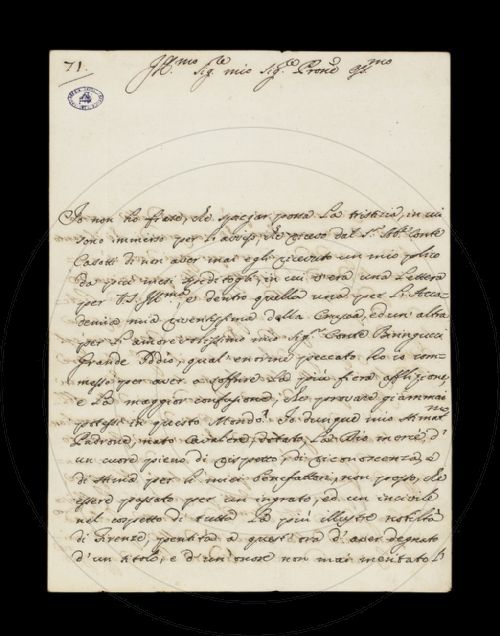 71.
Ill.mo Sig.re mio Sig.re Pron.e
Io non ho fiato, che spiegar possa la tristezza, in cui
sono immerso per l'avviso, che ricevo dal S.r Ab.e Conte
Casotti di non aver mai egli ricevuto un mio plico
da più mesi speditogli, in cui v'era una Lettera
per VS. Ill.ma, e dentro quella una per l'Acca-
demia mia della Crusca, ed un'altra
per l' mio Sig.r Conte Biringucci
Grande Iddio, qual'enorme peccato ho io com-
messo per aver a soffrire la più fiera afflizione,
e la maggior confusione, che provare giammai
potessi in questo Mondo! Io dunque mio Stimat.mo
Padrone, nato Cavaliere, dotato, la Dio mercè d'
un cuore pieno di rispetto, di riconoscenza, e
di stima per li miei Benefattori, non posso, che
essere passato per un ingrato, ed un incivile
nel cospetto di tutta la più illustre nobiltà
di Firenze, pentita a quest'ora d'aver degnato
d'un titolo, e d'un'onore non mai meritato